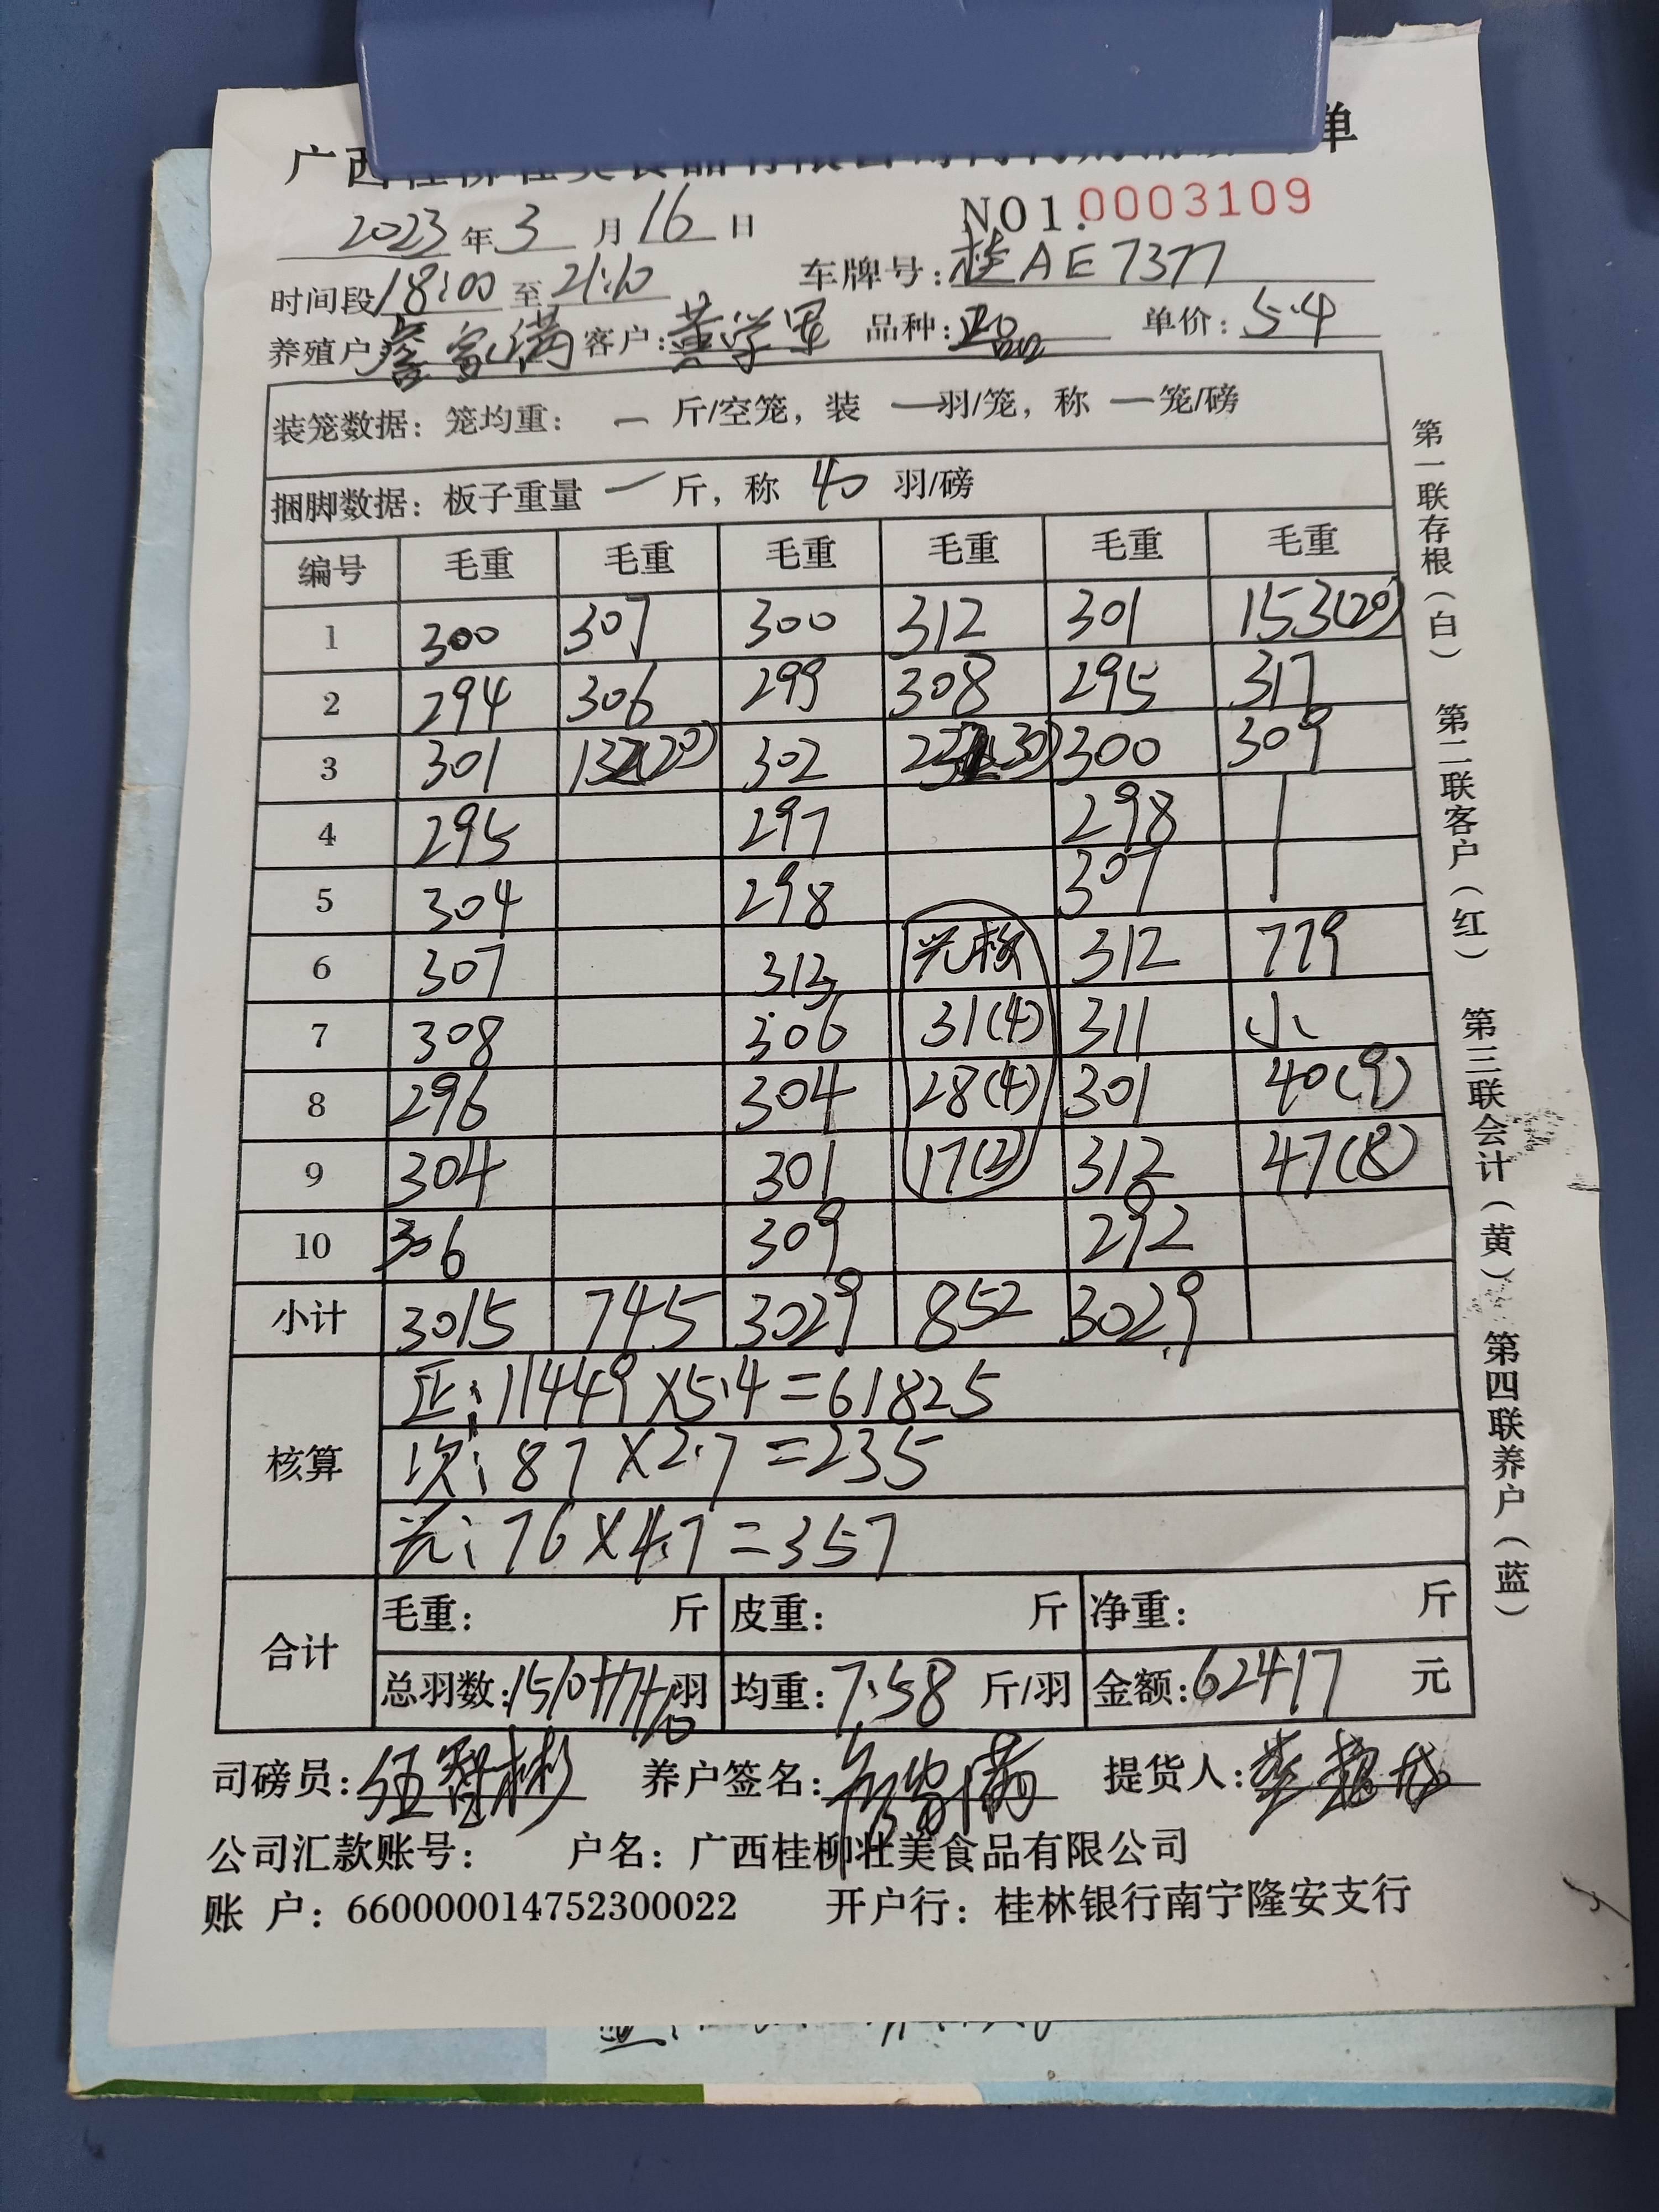 单
2023年3月16日 NO1.0003109
时间段18:00至21:10 车牌号:桂AE7377
养殖户 富满 客户:黄学军 品种:正品 单价:5.4
装笼数据: 笼均重: 一 斤/空笼, 装 一 羽/笼, 称 一 笼/磅
捆脚数据: 板子重量 一 斤, 称 40 羽/磅
编号 毛重 毛重 毛重 毛重 毛重 毛重
1 300 307 300 312 301 153(20)
2 294 306 299 308 295 317
3 301 132(20) 302 (30) 300 309
4 295 297 298
5 304 298 307
6 307 313 312 779
7 308 306 31(4) 311 小
8 296 304 28(4) 301 40(9)
9 304 301 17(2) 312 47(8)
10 306 309 292
小计 3015 745 3029 852 3029
核算
正:11449×5.4=61825
次:87×2.7=235
光:76×4.7=357
合计
毛重: 斤 皮重: 斤 净重: 斤
总羽数:1510+17+10羽 均重:7.58 斤/羽 金额:62417 元
司磅员:伍 彬 养户签名: 富满 提货人:
公司汇款账号: 户名: 广西桂柳壮美食品有限公司
账 户: 660000014752300022 开户行: 桂林银行南宁隆安支行
第一联存根(白) 第二联客户(红) 第三联会计(黄) 第四联养户(蓝)